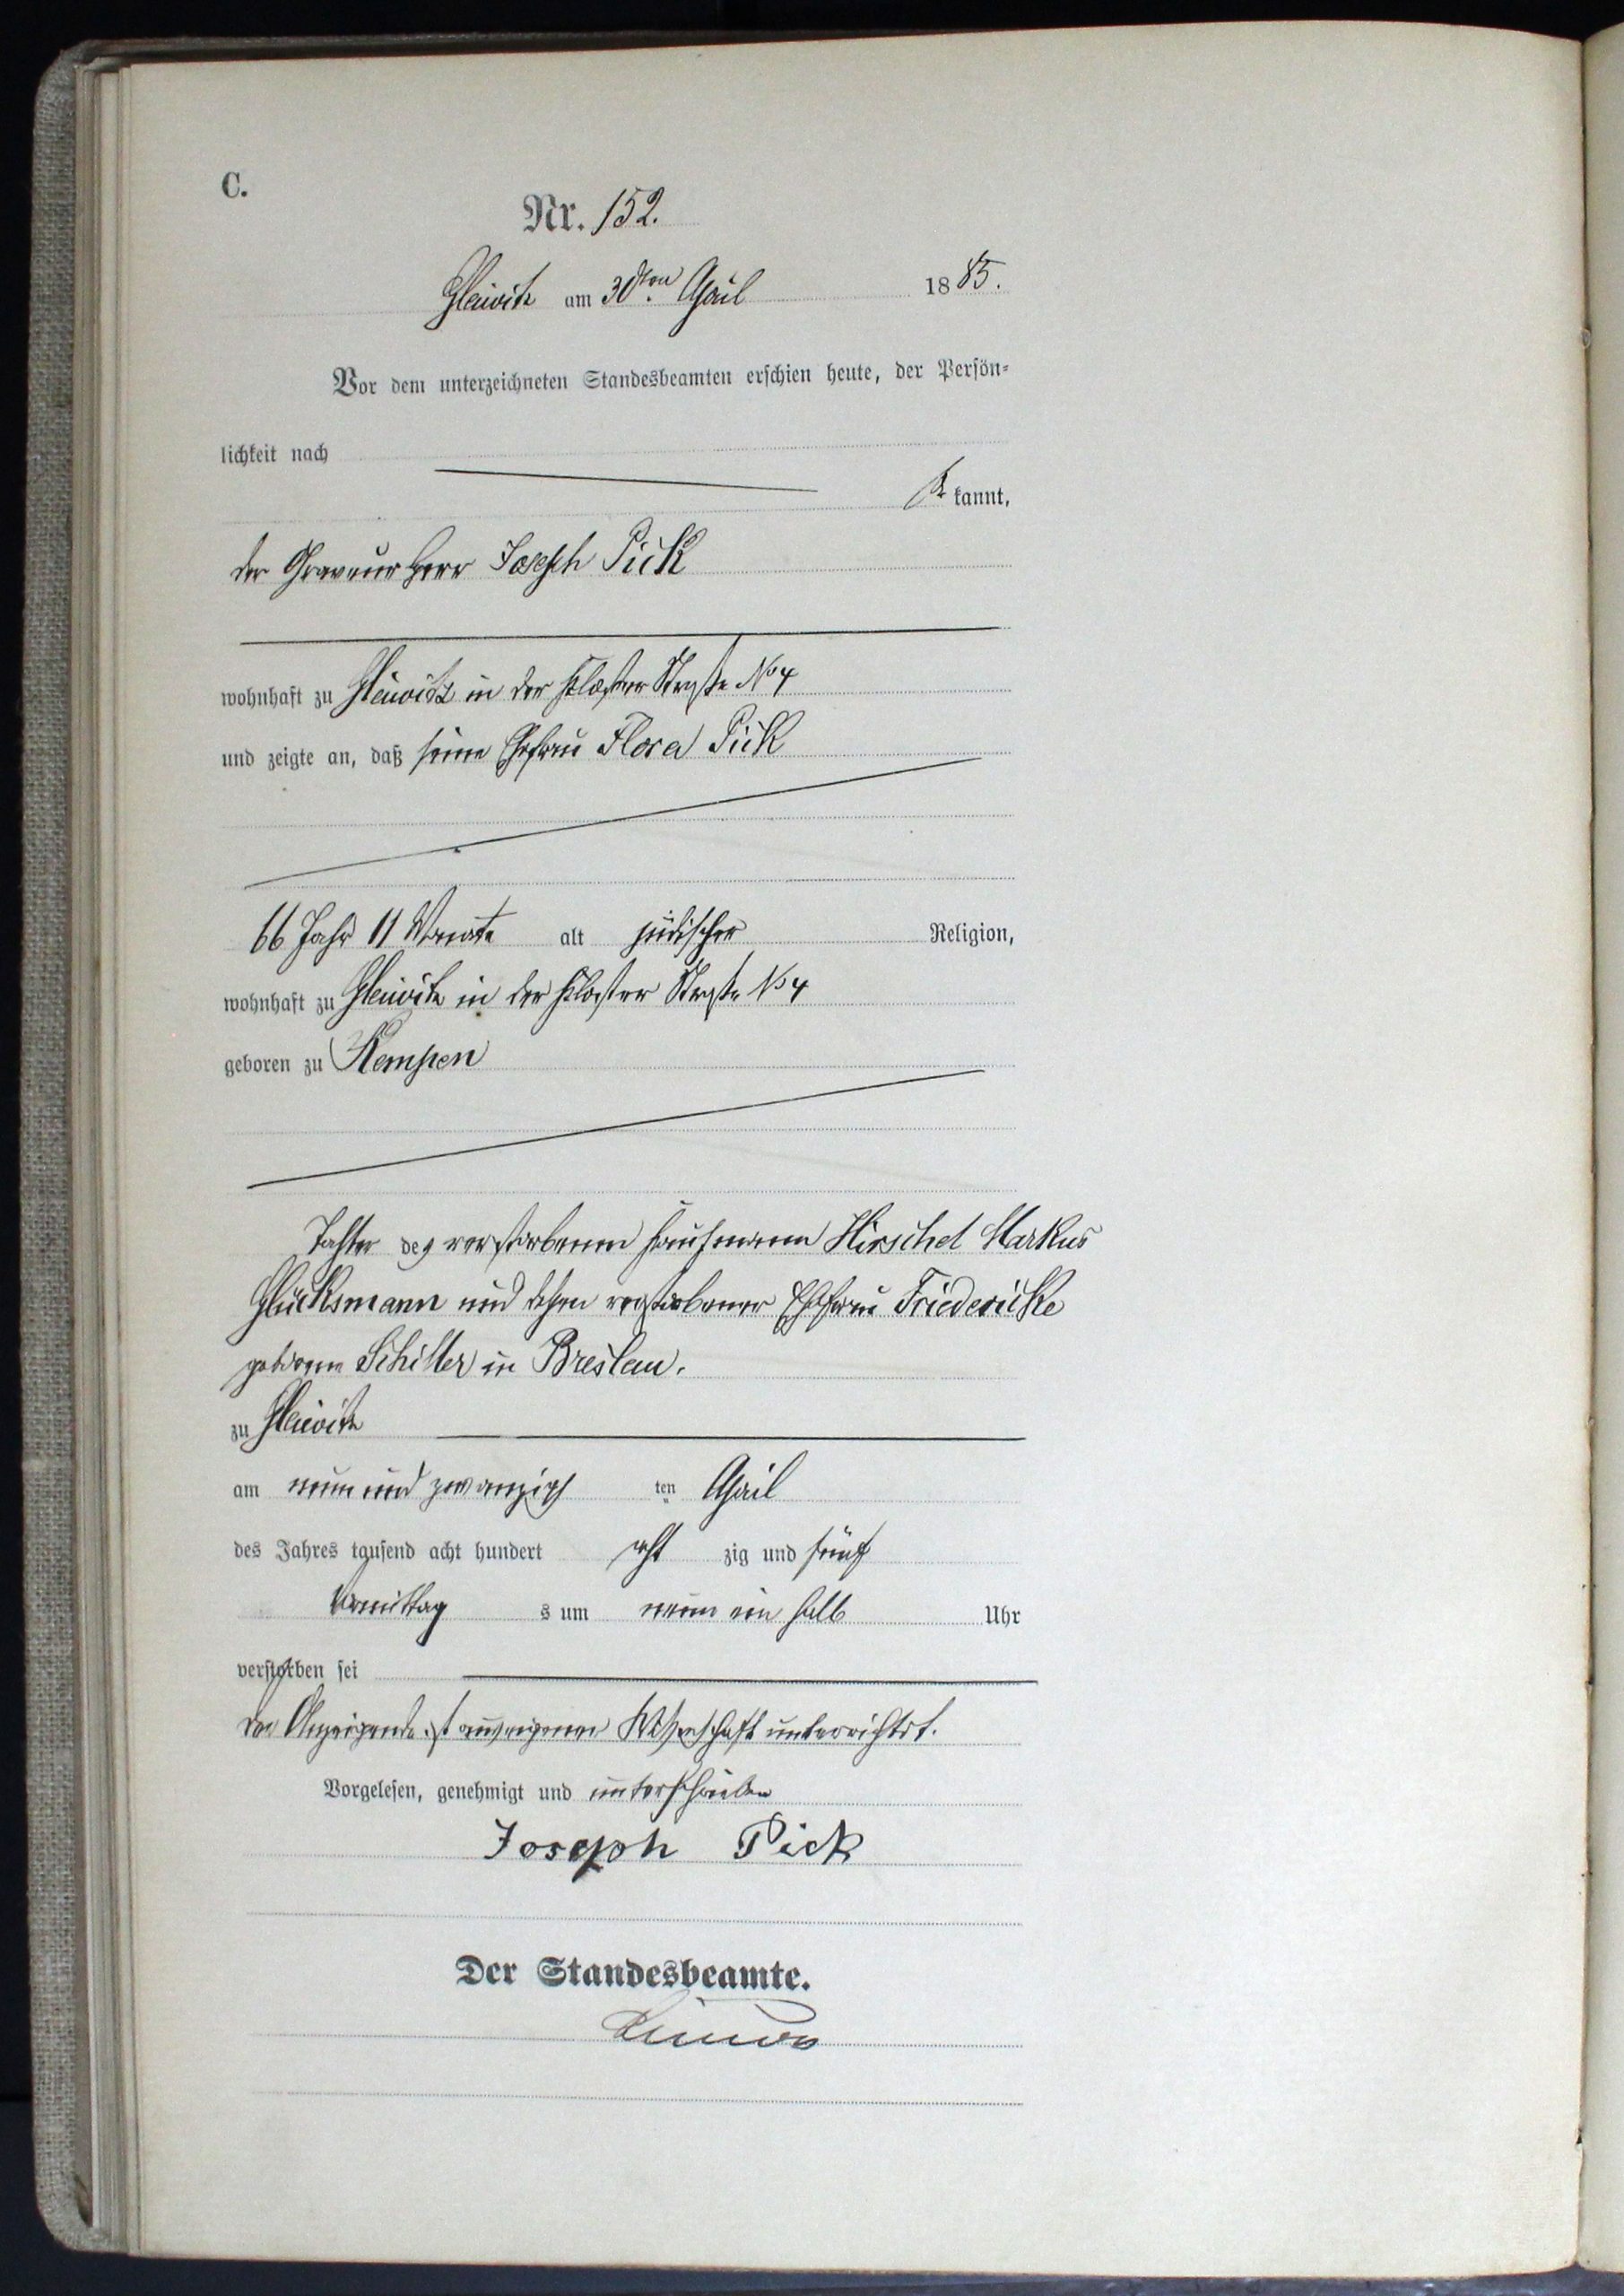 C.
Nr. 152.
Gleiwitz am 30ten April 1885.
Vor dem unterzeichneten Standesbeamten erschien heute, der Persön-
lichkeit nach
be kannt,
der Graveur Herr Joseph Pick
wohnhaft zu Gleiwitz in der Kloster Straße No 4
und zeigte an, daß seine Ehefrau Flora Pick
66 Jahr 11 Monate alt jüdischer Religion,
wohnhaft zu Gleiwitz in der Kloster Straße No 4
geboren zu Kempen
Tochter des verstorbenen Kaufmann Hirschel Markus
Glücksmann und dessen verstorbener Ehefrau Friedericke
geborene Schiller in Breslau.
zu Gleiwitz
am neun und zwanzig ten April
des Jahres tausend acht hundert acht zig und fünf
Vormittag s um neun ein halb Uhr
verstorben sei
Der Anzeigende ist aus eigener Wissenschaft unterrichtet.
Vorgelesen, genehmigt und unterschrieben
Joseph Pick
Der Standesbeamte.